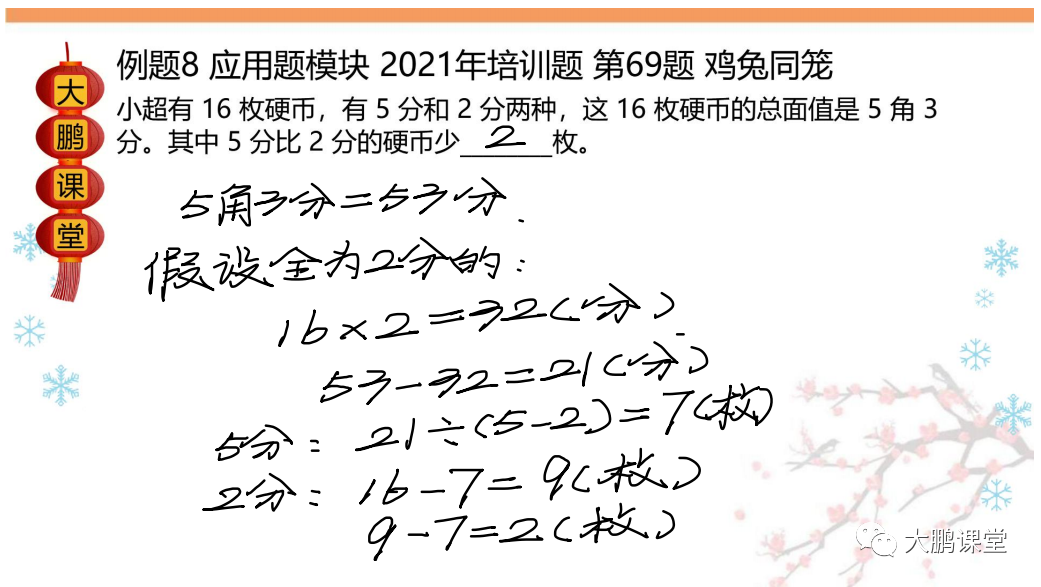 大鹏课堂
例题8 应用题模块 2021年培训题 第69题 鸡兔同笼
小超有 16 枚硬币，有 5 分和 2 分两种，这 16 枚硬币的总面值是 5 角 3
分。其中 5 分比 2 分的硬币少___2___枚。
5角3分=53分.
假设全为2分的:
16×2=32(分).
53-32=21(分)
5分: 21÷(5-2)=7(枚)
2分: 16-7=9(枚)
9-7=2(枚)
大鹏课堂